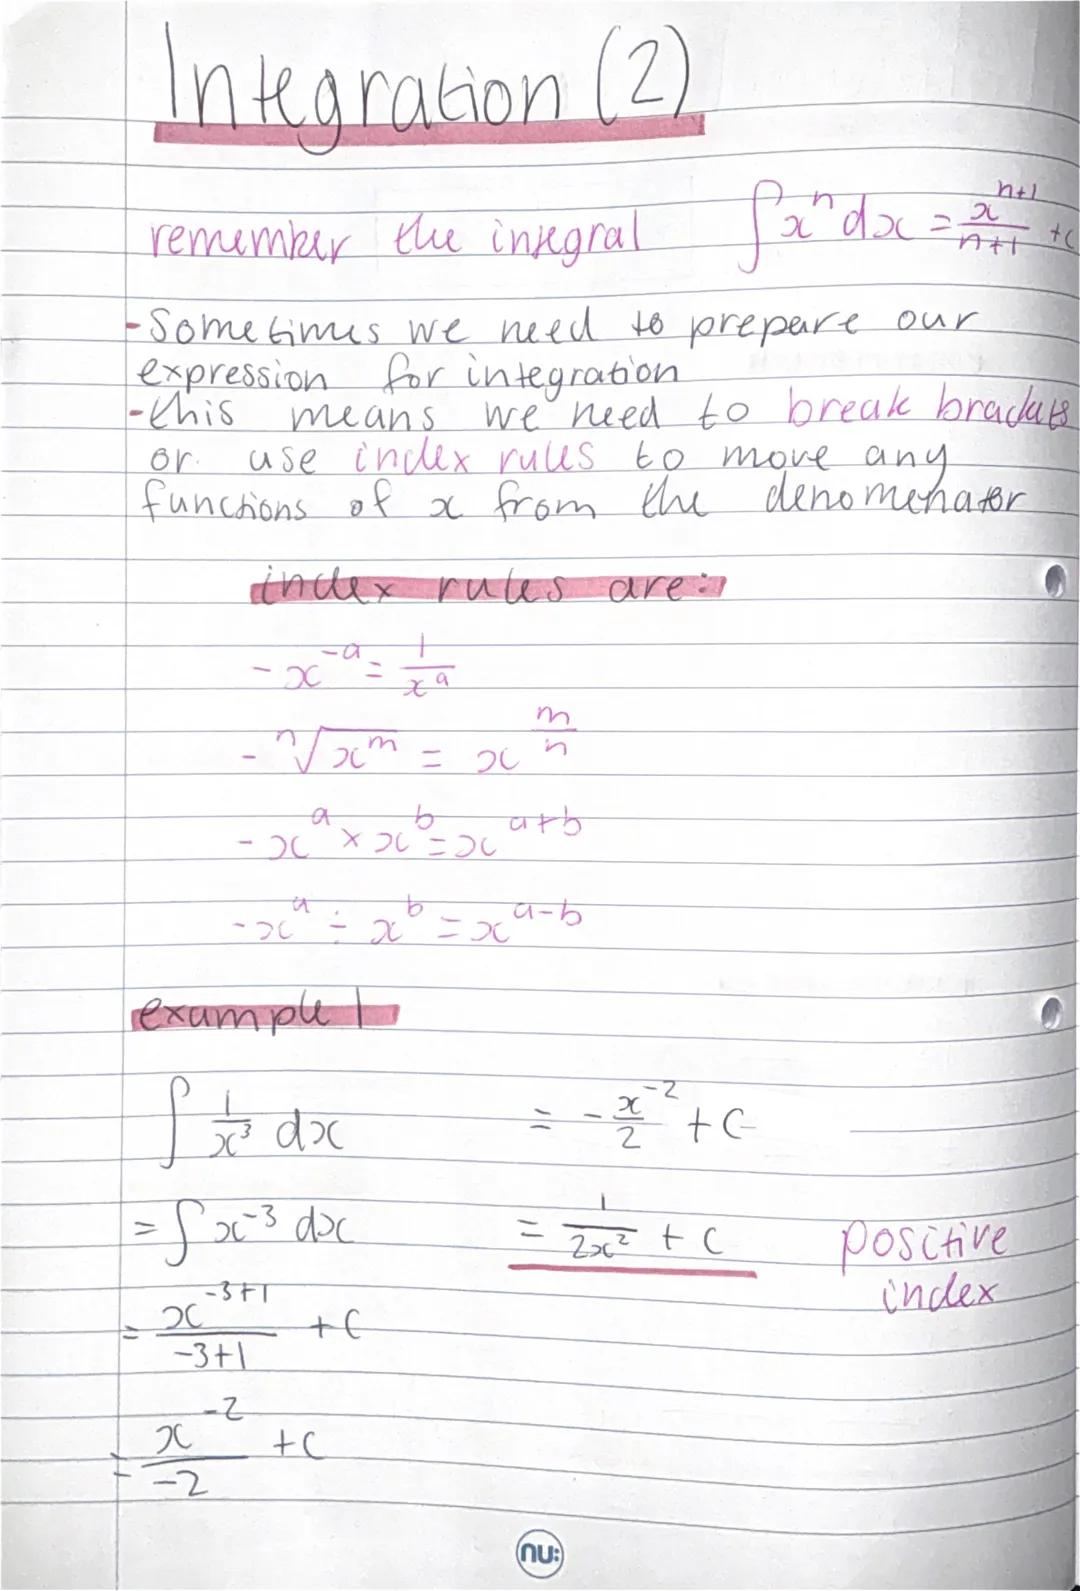 Integration (2)
remember the integral ∫xⁿdx = xⁿ⁺¹/n+1 +c
-Sometimes we need to prepare our
expression for integration
-this means we need to break brackets
or use index rules to move any
functions of x from the denomenator
index rules are:
- x⁻ᵃ = 1/xᵃ
- ⁿ√xᵐ = x^(m/n)
- xᵃ × xᵇ = xᵃ⁺ᵇ
- xᵃ ÷ xᵇ = xᵃ⁻ᵇ
example 1
∫ 1/x³ dx
= ∫ x⁻³ dx
= x⁻³⁺¹/-3+1 + C
= x⁻²/-2 + C
= - x⁻²/2 + C
= 1/2x² + C
positive
index
nu: